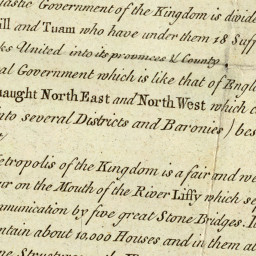 astic Government of the Kingdom is divide
ill and Tuam who have under them 18 Suff
ks United into its provinces & County
al Government which is like that of Engl
aught North East and North West which c
nto several Districts and Baronies) bes
etropolis of the Kingdom is a fair and we
ur on the Mouth of the River Liffy which se
mmunication by five great Stone Bridges. I
ntain about 10,000 Houses and in them ab